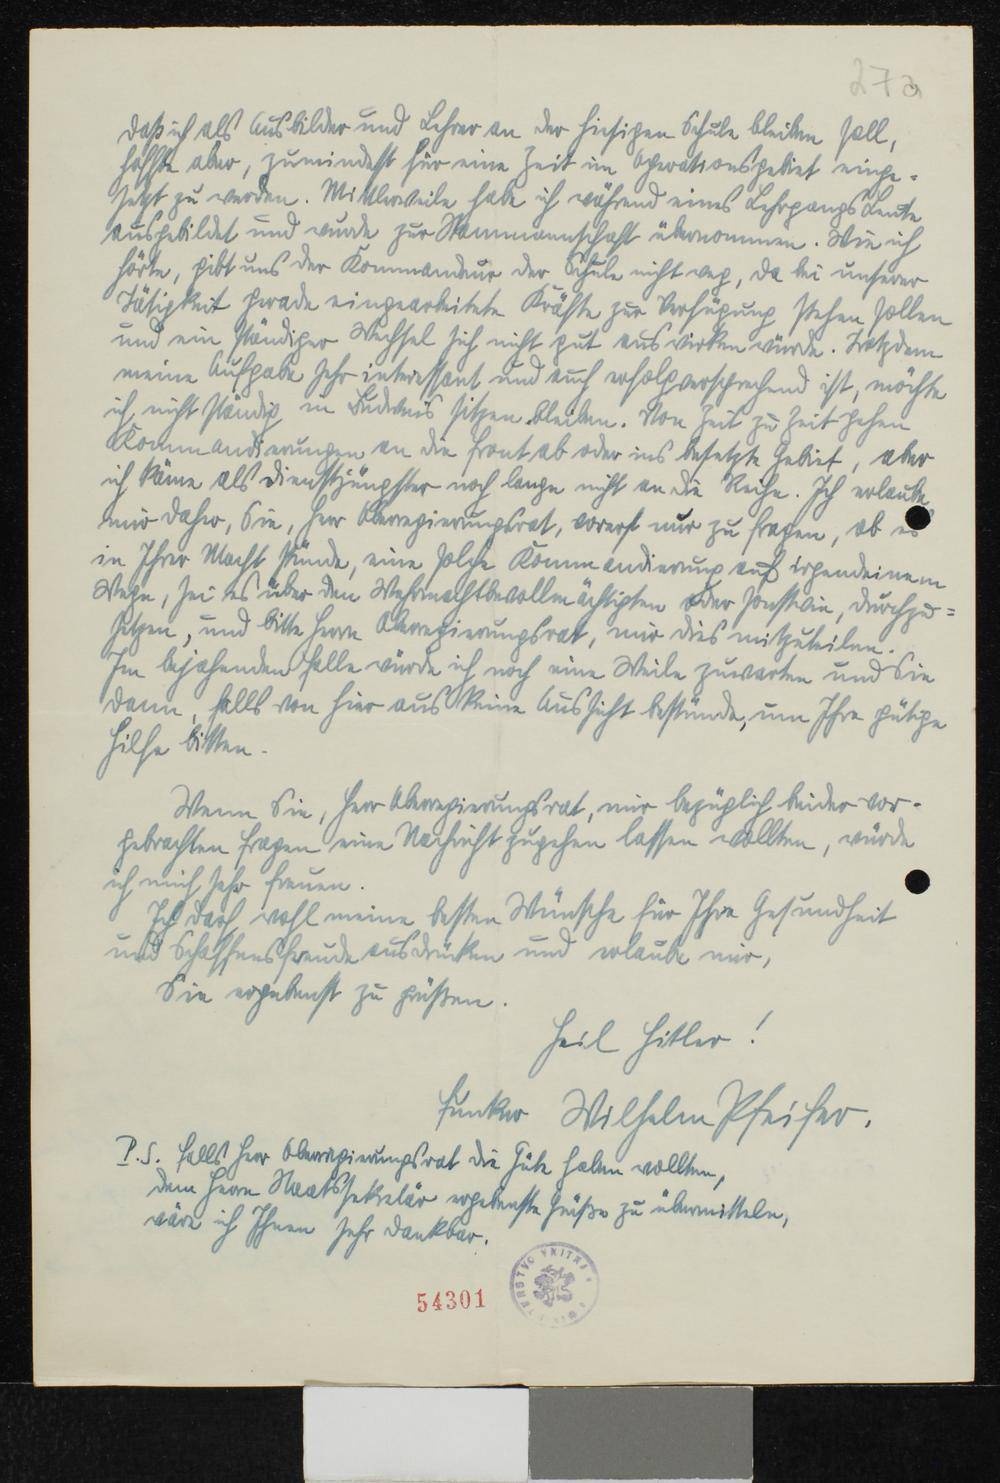 27a
daß ich als Ausbilder und Lehrer an der hiesigen Schule bleiben soll,
hoffte aber, zumindest für eine Zeit im Operationsgebiet einge-
setzt zu werden. Mittlerweile habe ich während eines Lehrgangs Leute
ausgebildet und wurde zur Stammannschaft übernommen. Wie ich
hörte, gibt uns der Kommandeur der Schule nicht weg, da bei unserer
Tätigkeit gerade eingearbeitete Kräfte zur Verfügung stehen sollen
und ein ständiger Wechsel sich nicht gut auswirken würde. Trotzdem
meine Aufgabe sehr interessant und auch erfolgversprechend ist, möchte
ich nicht ständig in sitzen bleiben. Von Zeit zu Zeit gehen
Kommandierungen an die Front ab oder ins besetzte Gebiet, aber
ich käme als Dienstjüngster noch lange nicht an die Reihe. Ich erlaube
mir daher, Sie, Herr Oberregierungsrat, vorerst nur zu fragen, ob es
in Ihrer Macht stünde, eine solche Kommandierung auf irgendeinem
Wege, sei es über den Wehrmachtbevollmächtigten oder sonstwie, durchzu-
setzen, und bitte Herrn Oberregierungsrat, mir dies mitzuteilen.
Im bejahenden Falle würde ich noch eine Weile zuwarten und Sie
dann, falls von hier aus keine Aussicht bestünde, um Ihre gütige
Hilfe bitten.
Wenn Sie, Herr Oberregierungsrat, mir bezüglich beider vor-
gebrachten Fragen eine Nachricht zugehen lassen wollten, würde
ich mich sehr freuen.
Ich darf wohl meine besten Wünsche für Ihre Gesundheit
und Schaffensfreude ausdrücken und erlaube mir,
Sie ergebenst zu grüßen.
Heil Hitler!
Funker Wilhelm Pfeifer.
P.S. Falls Herr Oberregierungsrat die Güte haben wollten,
dem Herrn Staatssekretär ergebenste Grüße zu übermitteln,
wäre ich Ihnen sehr dankbar.
54301
VNITRA